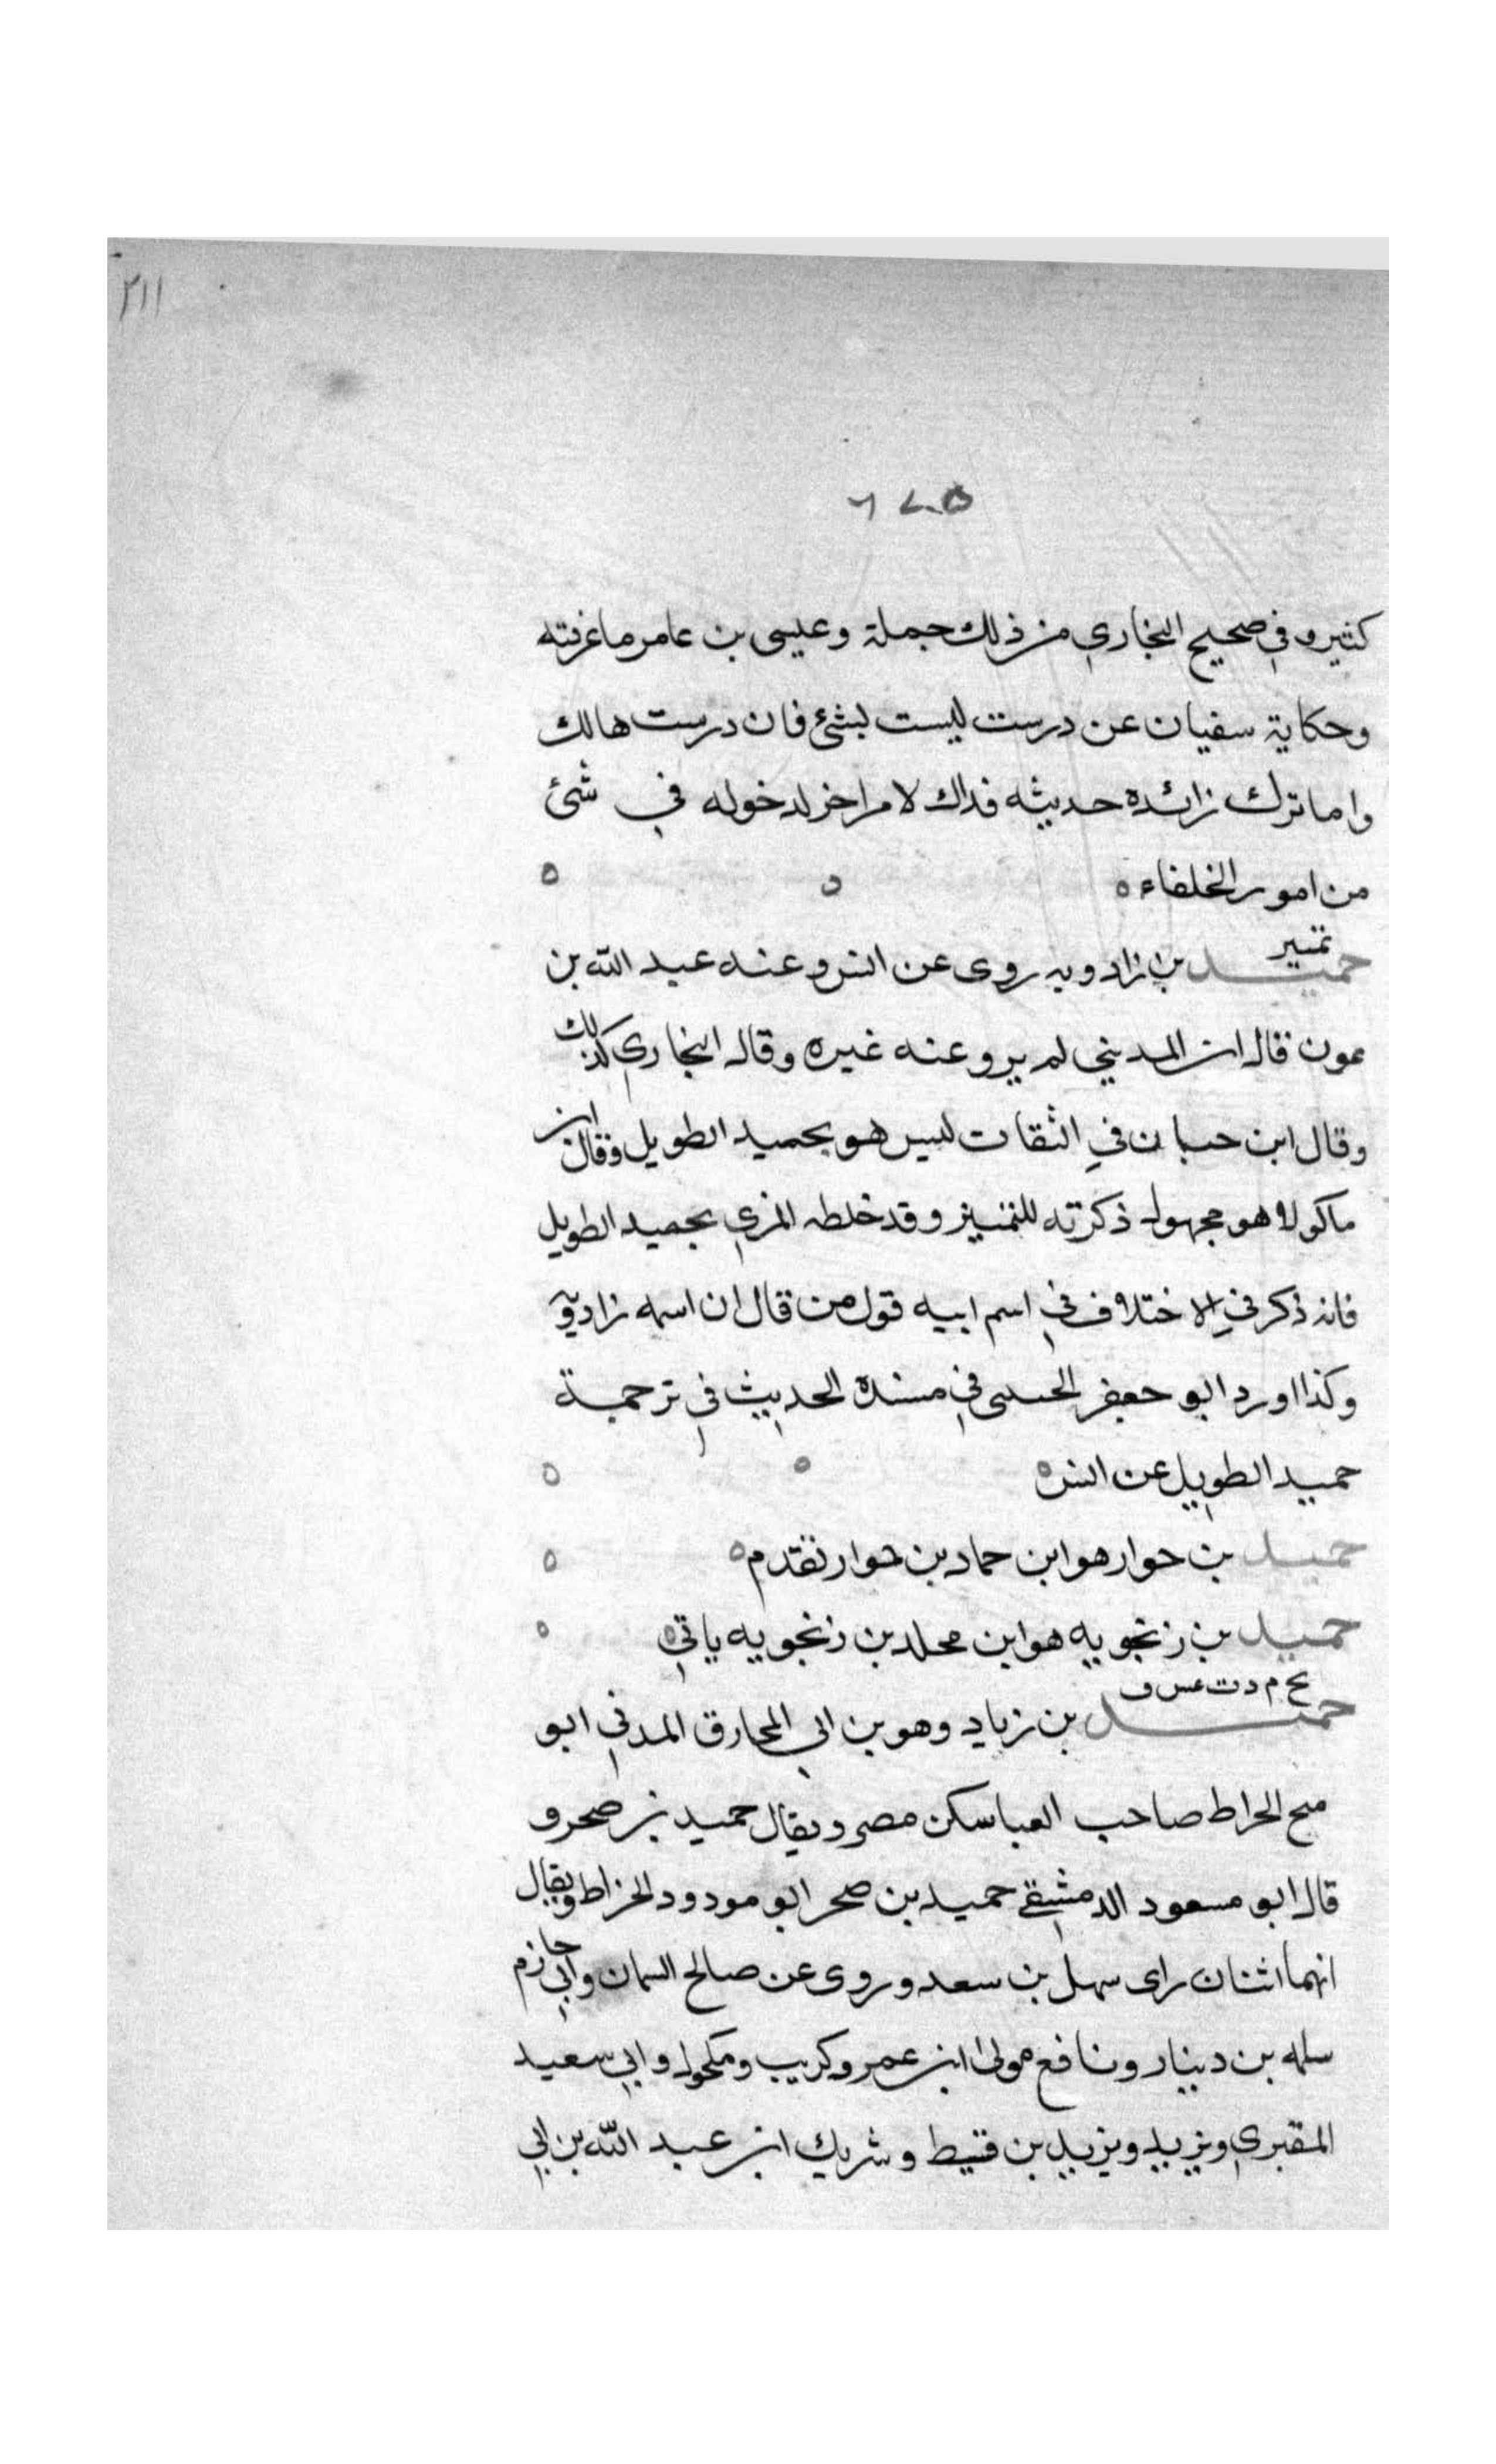 ٢١١
كثيره في صحيح البخاري من ذلك جملة وعيسى بن عامر ما عرفته
وحكاية سفيان عن درست ليست بشئ فان درست هالك
واما ترك زائدة حديثه فذاك لامر اخر لدخوله في شئ
من امور الخلفاء ه
تمييز
حميد بن زادويه روى عن انس وعنه عبد الله بن
عون قال ابن المديني لم يرو عنه غيره وقال البخاري كذلك
وقال ابن حبان في الثقات ليس هو بحميد الطويل وقال ابن
ماكولا هو مجهول ذكرته للتمييز وقد خلطه المزي بحميد الطويل
فانه ذكر في الاختلاف في اسم ابيه قول من قال ان اسمه زادويه
وكذا اورد ابو جعفر الحسى في مسنده الحديث في ترجمة
حميد الطويل عن انس ه
حميد بن حوار هو ابن حماد بن حوار تقدم ه
حميد بن زنجويه هو ابن مخلد بن زنجويه ياتي ه
بخ م د ت عس ق
حميد بن زياد وهو بن ابي المخارق المدني ابو
صخر الخراط صاحب العبا سكن مصر ويقال حميد بن صخر و
قال ابو مسعود الدمشقي حميد بن صخر ابو مودود الخراط ويقال
انهما اثنان راى سهل بن سعد وروى عن صالح السمان وابي حازم
سلمه بن دينار ونافع مولى ابن عمر وكريب ومكحول وابي سعيد
المقبري ويزيد ويزيد بن قسيط وشريك ابن عبد الله بن ابي